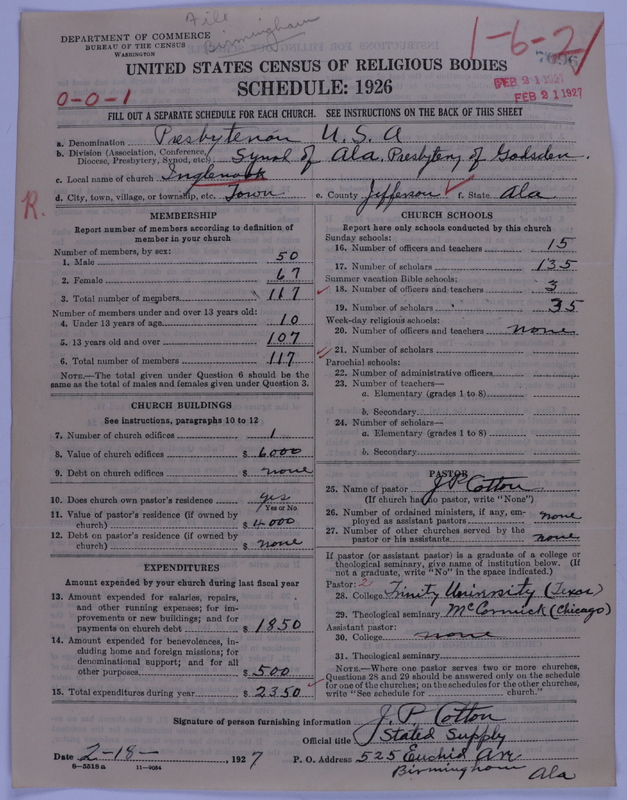 File
Birmingham
DEPARTMENT OF COMMERCE
BUREAU OF THE CENSUS
WASHINGTON
1-6-21
7096
UNITED STATES CENSUS OF RELIGIOUS BODIES
FEB 21 1927
SCHEDULE: 1926
FEB 21 1927
0-0-1
FILL OUT A SEPARATE SCHEDULE FOR EACH CHURCH. SEE INSTRUCTIONS ON THE BACK OF THIS SHEET
a. Denomination Presbyterian U.S.A
b. Division (Association, Conference, Diocese, Presbytery, Synod, etc.) Synod of Ala. Presbytery of Gadsden.
c. Local name of church Inglenook
d. City, town, village, or township, etc. Town e. County Jefferson f. State Ala.
R.
MEMBERSHIP
Report number of members according to definition of
member in your church
Number of members, by sex:
1. Male 50
2. Female 67
3. Total number of members 117
Number of members under and over 13 years old:
4. Under 13 years of age 10
5. 13 years old and over 107
6. Total number of members 117
NOTE.—The total given under Question 6 should be the
same as the total of males and females given under Question 3.
CHURCH BUILDINGS
See instructions, paragraphs 10 to 12
7. Number of church edifices 1
8. Value of church edifices $ 6000
9. Debt on church edifices $ none
10. Does church own pastor's residence yes
Yes or No
11. Value of pastor's residence (if owned by
church) $ 4000
12. Debt on pastor's residence (if owned by
church) $ none
EXPENDITURES
Amount expended by your church during last fiscal year
13. Amount expended for salaries, repairs,
and other running expenses; for im-
provements or new buildings; and for
payments on church debt $ 1850
14. Amount expended for benevolences, in-
cluding home and foreign missions; for
denominational support; and for all
other purposes $ 500
15. Total expenditures during year $ 2350
CHURCH SCHOOLS
Report here only schools conducted by this church
Sunday schools:
16. Number of officers and teachers 15
17. Number of scholars 135
Summer vacation Bible schools:
18. Number of officers and teachers 3
19. Number of scholars 35
Week-day religious schools:
20. Number of officers and teachers none
21. Number of scholars
Parochial schools:
22. Number of administrative officers
23. Number of teachers—
a. Elementary (grades 1 to 8)
b. Secondary
24. Number of scholars—
a. Elementary (grades 1 to 8)
b. Secondary
PASTOR
25. Name of pastor J P Cotton
(If church has no pastor, write "None")
26. Number of ordained ministers, if any, em-
ployed as assistant pastors none
27. Number of other churches served by the
pastor or his assistants none
If pastor (or assistant pastor) is a graduate of a college or
theological seminary, give name of institution below. (If
not a graduate, write "No" in the space indicated.)
Pastor: 2
28. College Trinity University (Texas)
29. Theological seminary McCormick (Chicago)
Assistant pastor:
30. College none
31. Theological seminary
NOTE.—Where one pastor serves two or more churches,
Questions 28 and 29 should be answered only on the schedule
for one of the churches; on the schedules for the other churches,
write "See schedule for church."
Signature of person furnishing information J. P. Cotton
Official title Stated Supply
Date 2-18- , 1927 P. O. Address 525 Euclid Ave
Birmingham Ala
8-5518a 11-9084